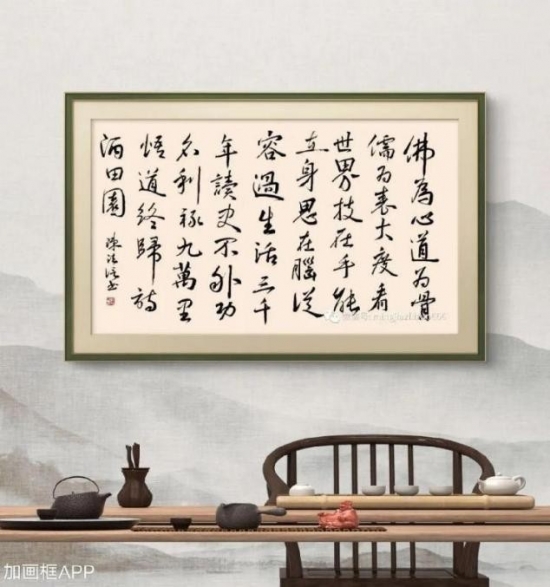 佛為心道為骨
儒為表大度看
世界技在手能
在身思在腦從
容過生活三千
年讀史不外功
名利祿九萬里
悟道終歸詩
酒田園
加画框APP